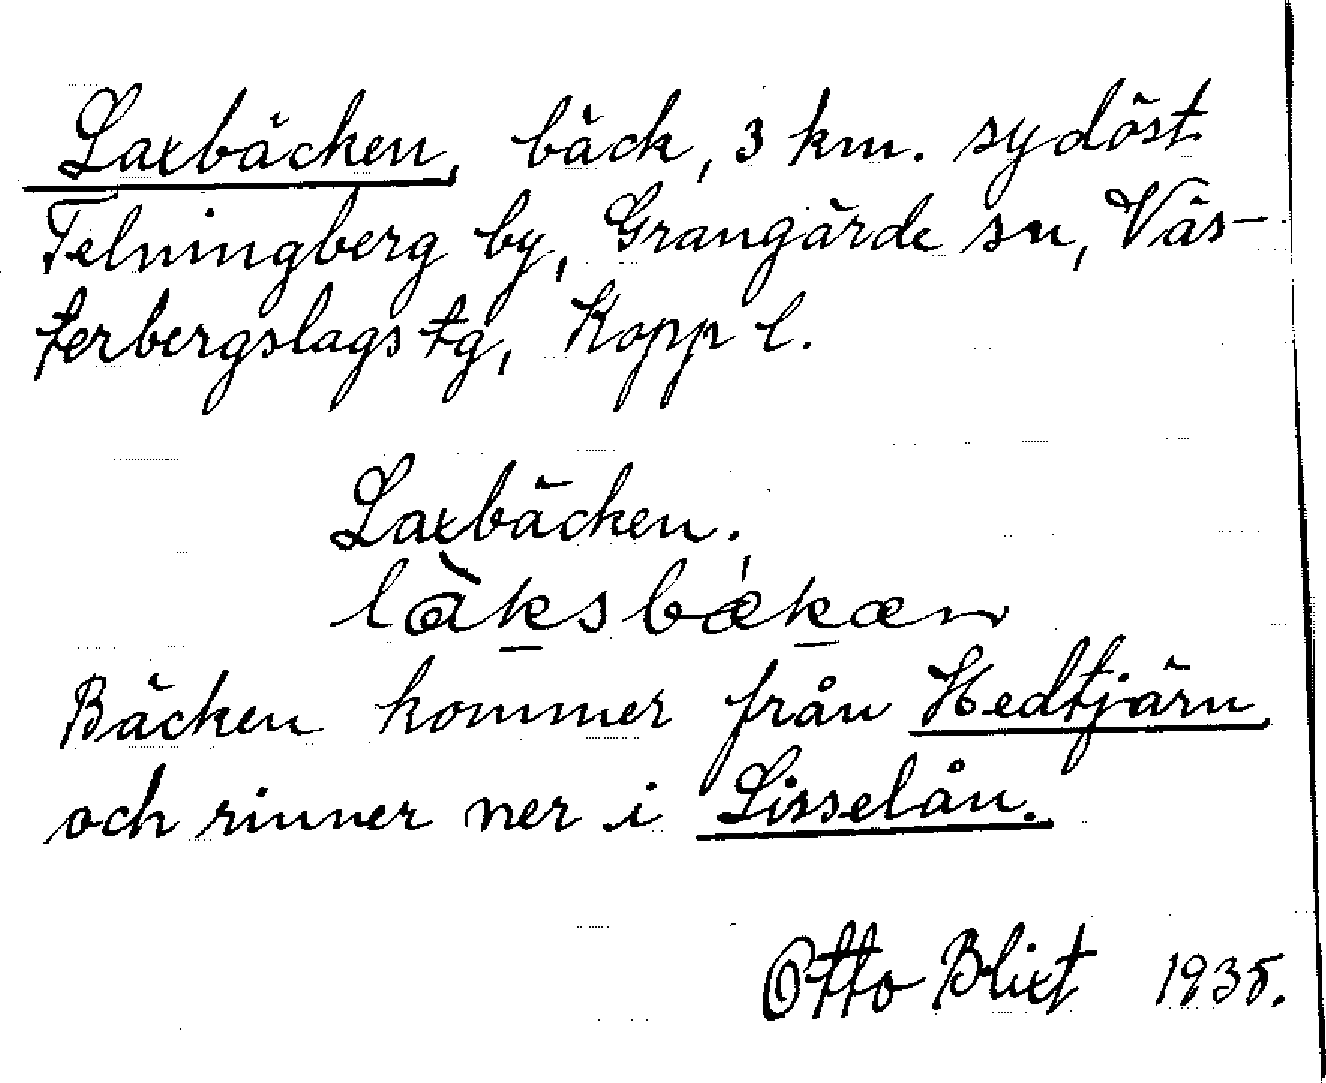 Laxbäcken, bäck, 3 km. sydöst
Felningberg by, Grangärde sn, Väs-
terbergslags tg, Kopp l.
Laxbäcken.
làksbækæn
Bäcken kommer från Hedtjärn,
och rinner ner i Lisselån.
Otto Blixt 1935.